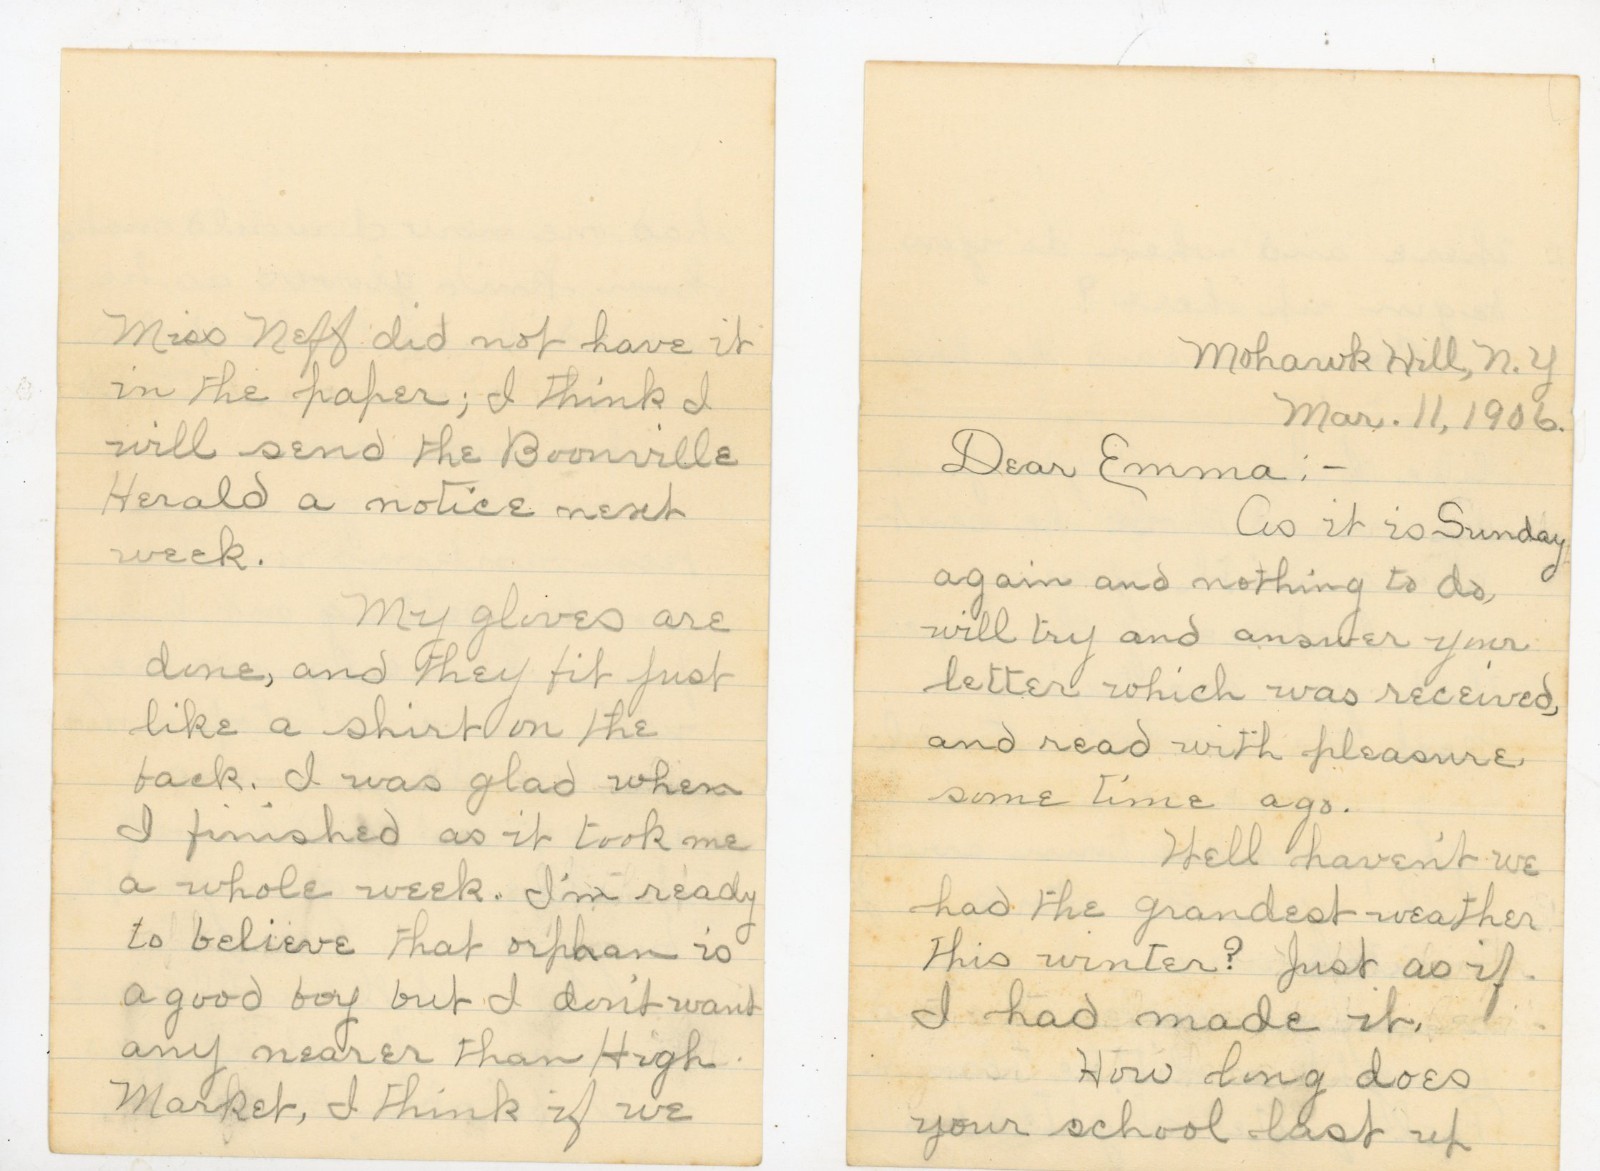 Miss Neff did not have it
in the paper; I think I
will send the Boonville
Herald a notice next
week.
My gloves are
done, and they fit just
like a shirt on the
back. I was glad when
I finished as it took me
a whole week. I'm ready
to believe that orphan is
a good boy but I don't want
any nearer than High
Market, I think if we
Mohawk Hill, N.Y
Mar. 11, 1906.
Dear Emma:-
As it is Sunday
again and nothing to do,
will try and answer your
letter which was received,
and read with pleasure
some time ago.
Well haven't we
had the grandest weather
this winter? Just as if
I had made it.
How long does
your school last up